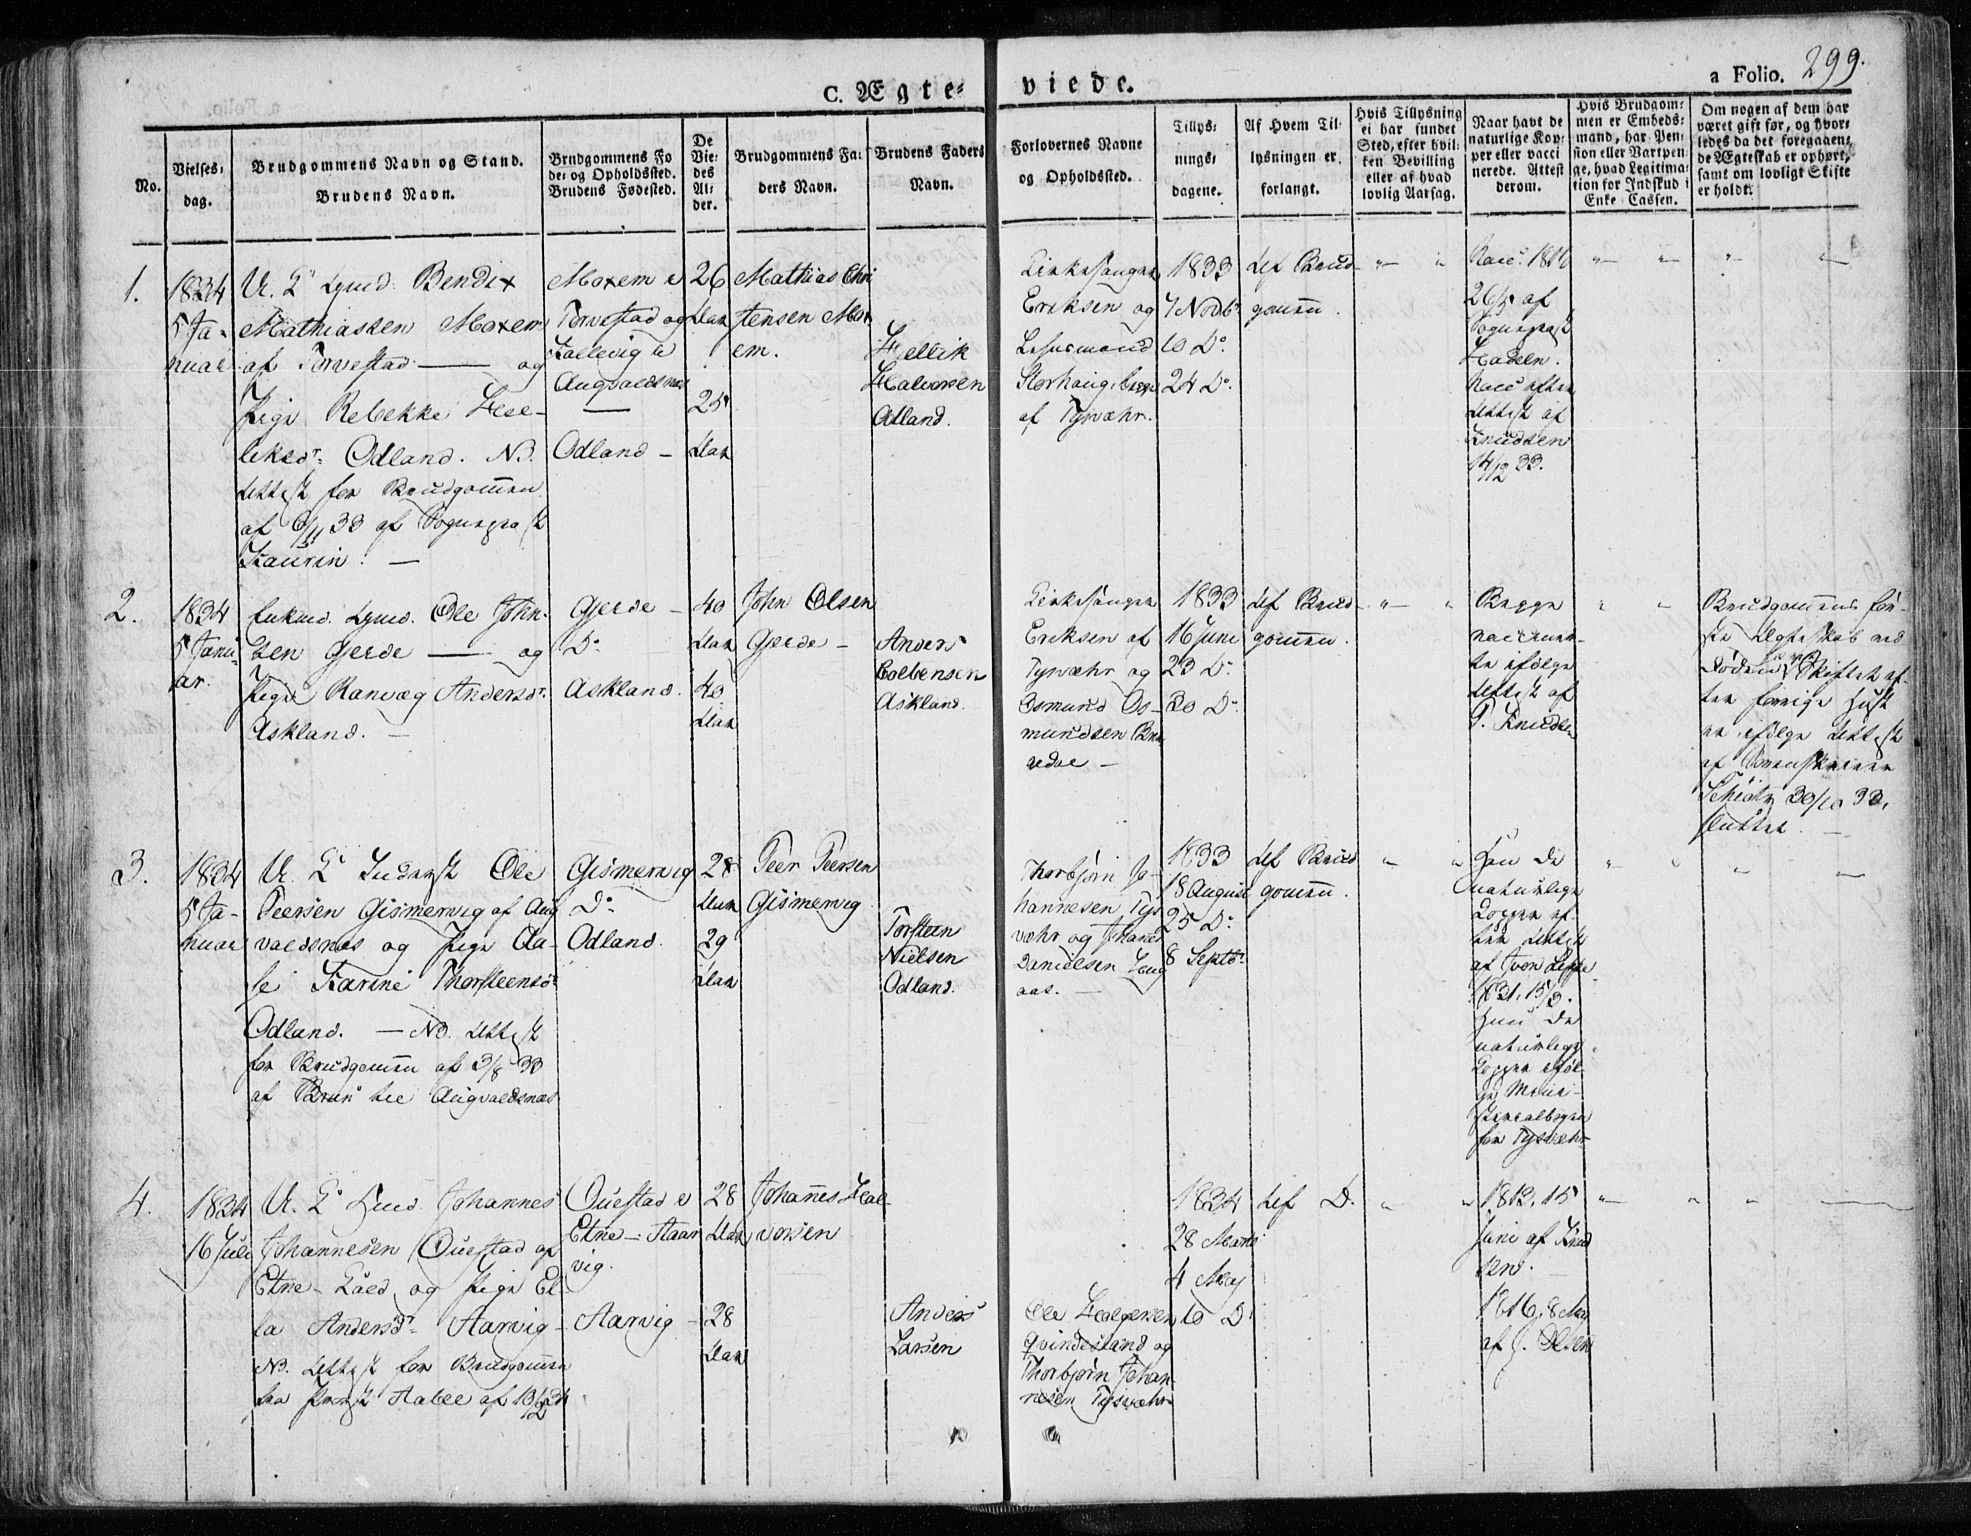 C. Ægte-
viede.
a Folio. 299.
No.
Vielses-
dag.
Brudgommens Navn og Stand.
Brudens Navn.
Brudgommens Fø
de- og Opholdssted.
Brudens Fødested.
De
Vie-
des
Al-
der.
Brudgommens Fa-
ders Navn.
Brudens Faders
Navn.
Forlovernes Navne
og Opholdssted.
Tillys-
nings-
dagene.
Af Hvem Til-
lysningen er
forlangt.
Hvis Tillysning
ei har fundet
Sted, efter hvil-
ken Bevilling
eller af hvad
lovlig Aarsag.
Naar havt de
naturlige Kop-
per eller vacci
nerede. Attest
derom.
Hvis Brudgom-
men er Embeds-
mand, har Pen-
sion eller Vartpen-
ge, hvad Legitima-
tion for Indskud i
Enke Cassen.
Om nogen af dem har
været gift før, og hvor-
ledes da det foregaaen-
de Ægteskab er ophørt,
samt om lovligt Skifte
er holdt.
1.
1834
5 Ja-
nuar
Bendix
Mathiassen Moxem
af Torvestad — og
Pige Rebekke Hel-
liksdr. Odland. NB.
Attest for Brudgommen
af 6/11 33 af Sognepræst
Kaurin. —
Moxem i
Torvestad og
Kallevig i
Augvaldsnes
—
Odland —
26
Aar
25
Aar
Mathias Chri
stensen Mox
em.
Hellik
Halvorsen
Odland.
Kirkesanger
Eriksen og
Lehnsmand
Storhaug, begge
af Tysvæhr.
1833
7 Novbr
10 Do
24 Do
Af Brud-
gommen.
Vacc. 1816
26/5 af
Sognepræst
Vacc. efter
Attest af
Knudsen
14/12 33.
2.
1834
5 Janu-
ar.
Enkmd. Ole John-
sen Gjerde — og
Pige Ranvæg Andersdr.
Askland. —
Gjerde —
Do
Askland.
40
Aar
40
Aar
John Olsen
Gjerde —
Anders
Colbensen
Askland.
Kirkesanger
Eriksen af
Tysvæhr og
Osmund Os-
mundsen
1833
16 Juni
23 Do
30 Do
Af Brud-
gommen.
Begge
vaccinere-
de ifølge
Attest af
P. Knudsen
Brudgommens før-
ste Ægteskab ved
Døden, Skiftet ef-
ter forrige Hust
ru ifølge Attest
af Sorenskriver
Schiøtz 30/10 33,
sluttet. —
3.
1834
5 Ja-
nuar
Ole
Peersen Gismervig af Aug
valdsnæs og Pige Aa-
se Karine Thorsteensdr
Odland. — NB. Attest
for Brudgommen af 3/8 33
af Brun til Augvaldsnæs
Gismervig
Do
Odland.
28
Aar
29
Aar
Peer Peersen
Gismervig
Torsteen
Nielsen
Odland.
Thorbjørn Jo-
hannesen Tys
væhr og Johanes
Danielsen Haug
aas. —
1833
18 August
25 Do
8 Septbr
Af Brud
gommen.
Han de
naturlige
Kopper ef-
ter Attest
1831, 15/3.
Hun de
naturlige
Kopper iføl-
ge Mini-
sterialbogen
for Tysvæhr
4.
1834
16 Juli
Johannes
Johannesen Øuestad af
Etne og Pige El-
la Andersdr. Aarvig —
NB. Attest for Brudgommen
fra Præst Aabel af 13/2 34
Øuestad i
Etne —
vig.
Aarvig —
28
Aar
28
Aar
Johannes Hal-
vorsen
Anders
Larsen
Ole Helgesen
Qvindesland og
Thorbjørn Johan-
nesen Tysvæhr
1834
28 Marts
4 May
10 Do
Af D.
1813, 15
Juni af Knud
sen.
1816, 8 Mai
af J. Olsen